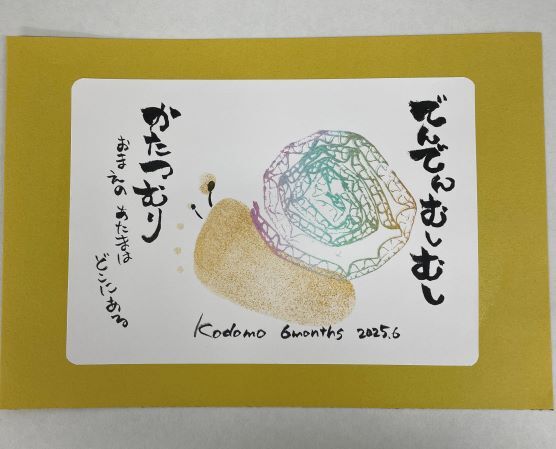 でんでんむしむし
かたつむり
おまえの あたまは
どこにある
Kodomo 6months 2025.6